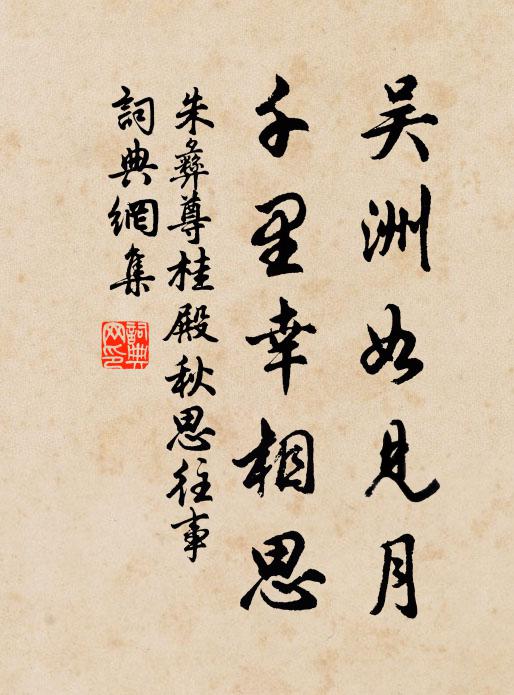 吴洲如見月
千里幸相思
朱彝尊桂殿秋思往事
詞典網集
詞典
网印